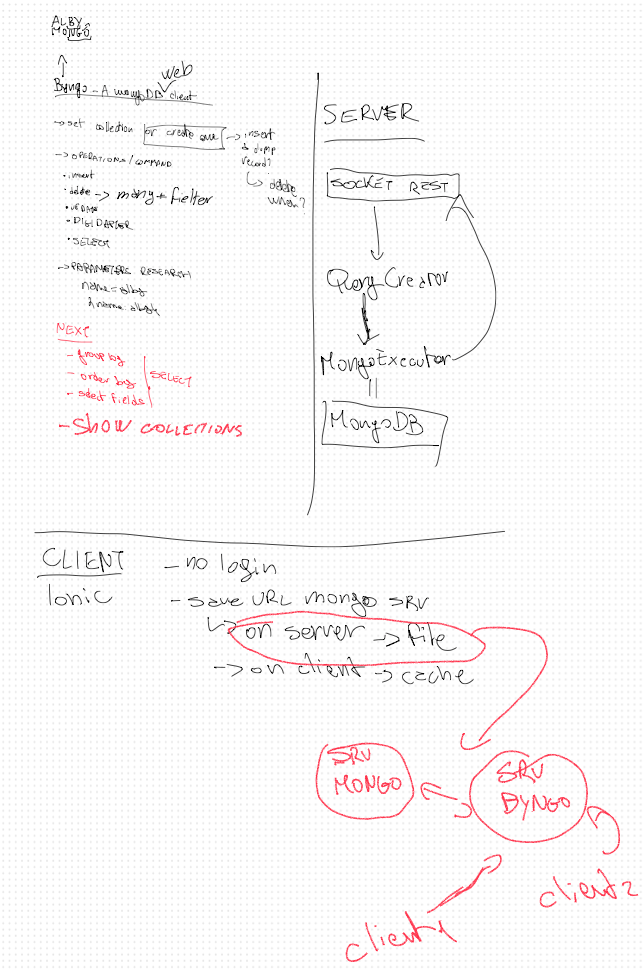 ALBY
MONGO
web
Byngo - A mongoDB client
→ set collection or create one → insert
& dump
record?
↳ delete
when?
→ OPERATIONS/COMMAND
• insert
• delete → many + fielter
• UPDATE
• SELECT
→ PARAMETERS RESEARCH
name = alby
NEXT
- group by
- order by
- select fields
SELECT
- SHOW COLLECTIONS
SERVER
SOCKET REST
Query Creator
MongoExecutor
MongoDB
CLIENT
Ionic
- no login
- save URL mongo SRV
↳ on server → file
→ on client → cache
SRV
MONGO
SRV
BYNGO
client1
client2